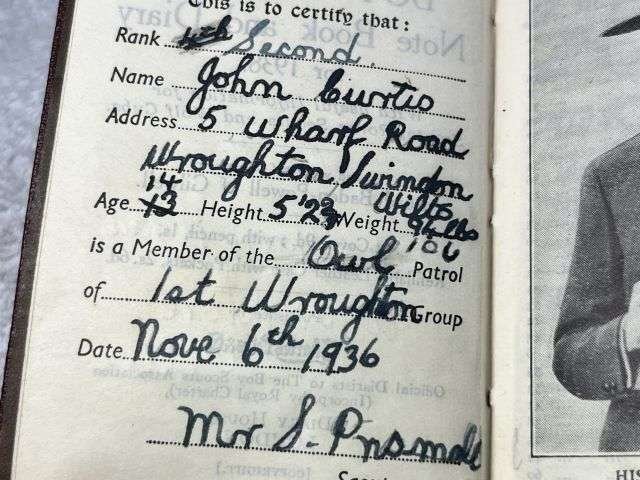 This is to certify that :
Rank 4th Second
Name John Curtis
Address 5 Wharf Road
Wroughton Swindon
Wilts
14
Age 13 Height 5'2 Weight lbs
106
is a Member of the Owl Patrol
of 1st Wroughton Group
Date Nove 6th 1936
Mr S.
HIS